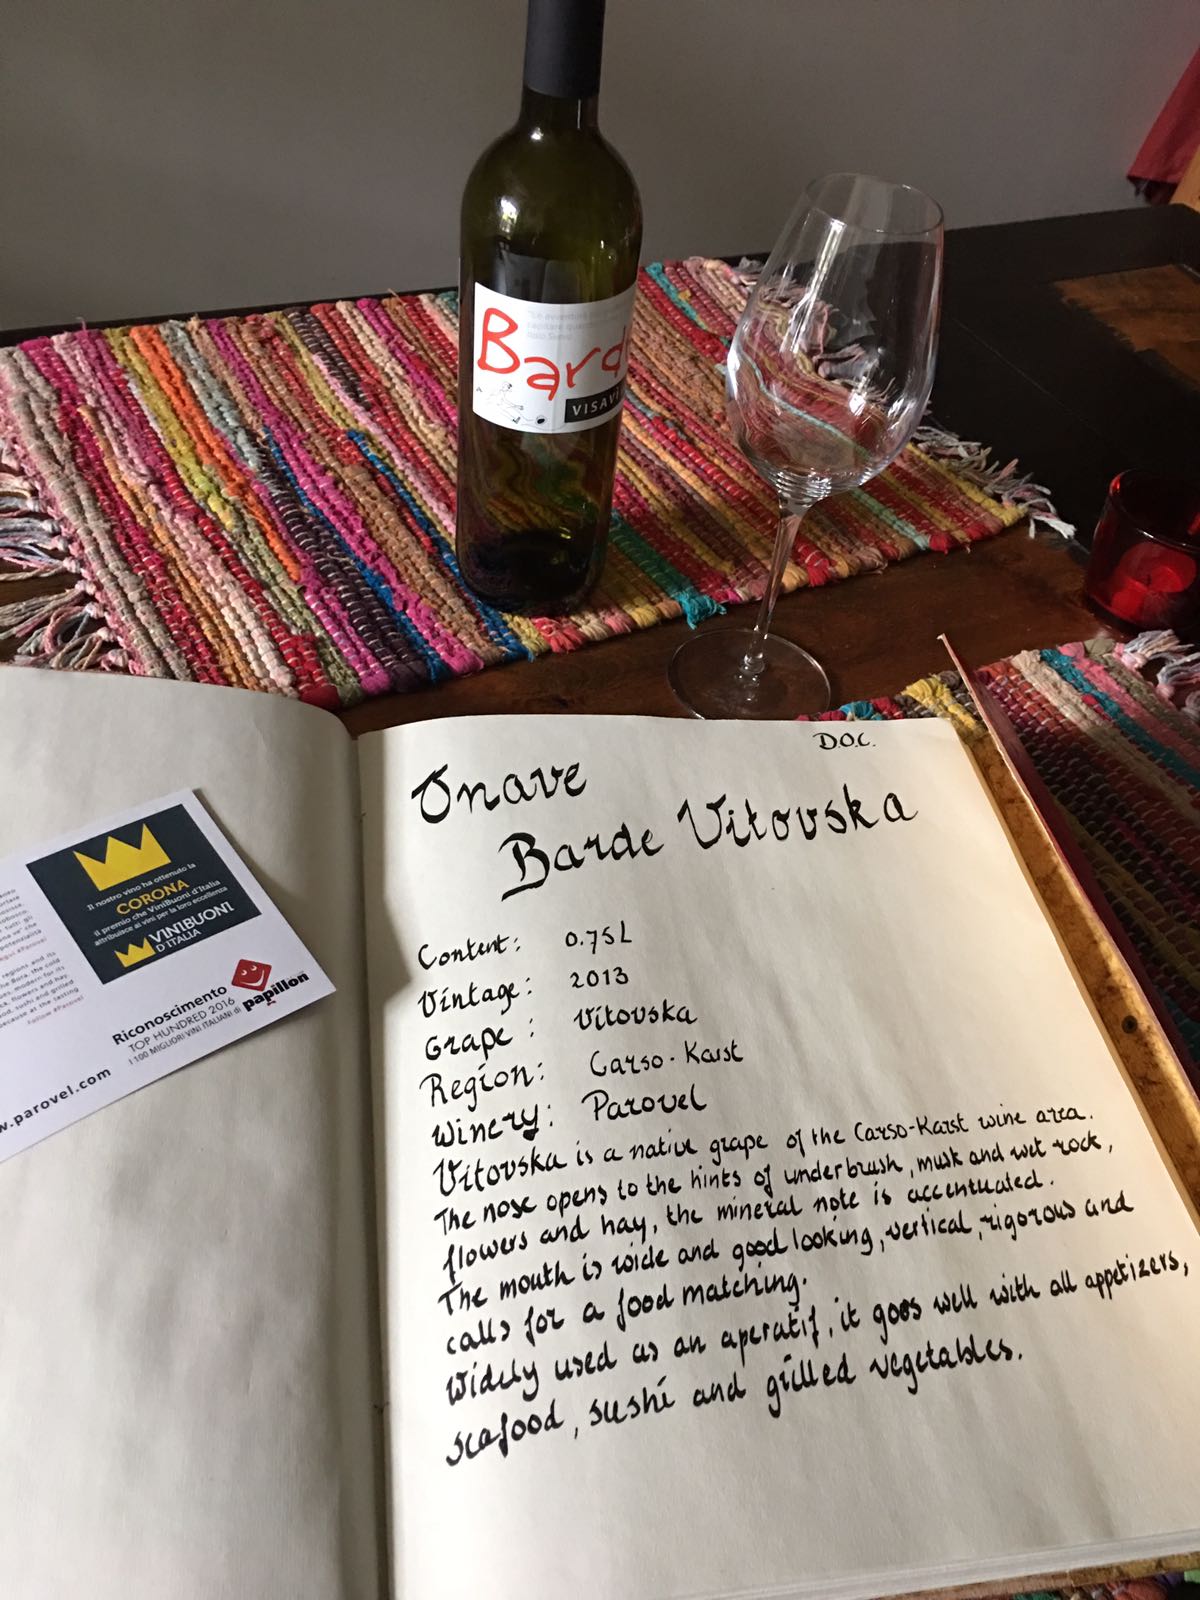 Bard
VISAVI
D.O.C.
Onave
Barde Vitovska
Content: 0.75L
Vintage: 2013
Grape: Vitovska
Region: Carso-Karst
Winery: Parovel
Vitovska is a native grape of the Carso-Karst wine area.
The nose opens to the hints of underbrush, musk and wet rock,
flowers and hay, the mineral note is accentuated.
The mouth is wide and good looking, vertical, rigorous and
calls for a food matching.
Widely used as an aperatif, it goes well with all appetizers,
seafood, sushi and grilled vegetables.
Il nostro vino ha ottenuto la
CORONA
il premio che ViniBuoni d'Italia
attribuisce ai vini per la loro eccellenza
VINIBUONI
D'ITALIA
papillon
Riconoscimento
TOP HUNDRED 2016
I 100 MIGLIORI VINI ITALIANI di
w.parovel.com
regions and its
the Bora, the cold
modern for its
flowers and hay.
sushi and grilled
because at the tasting
Follow #Parovel